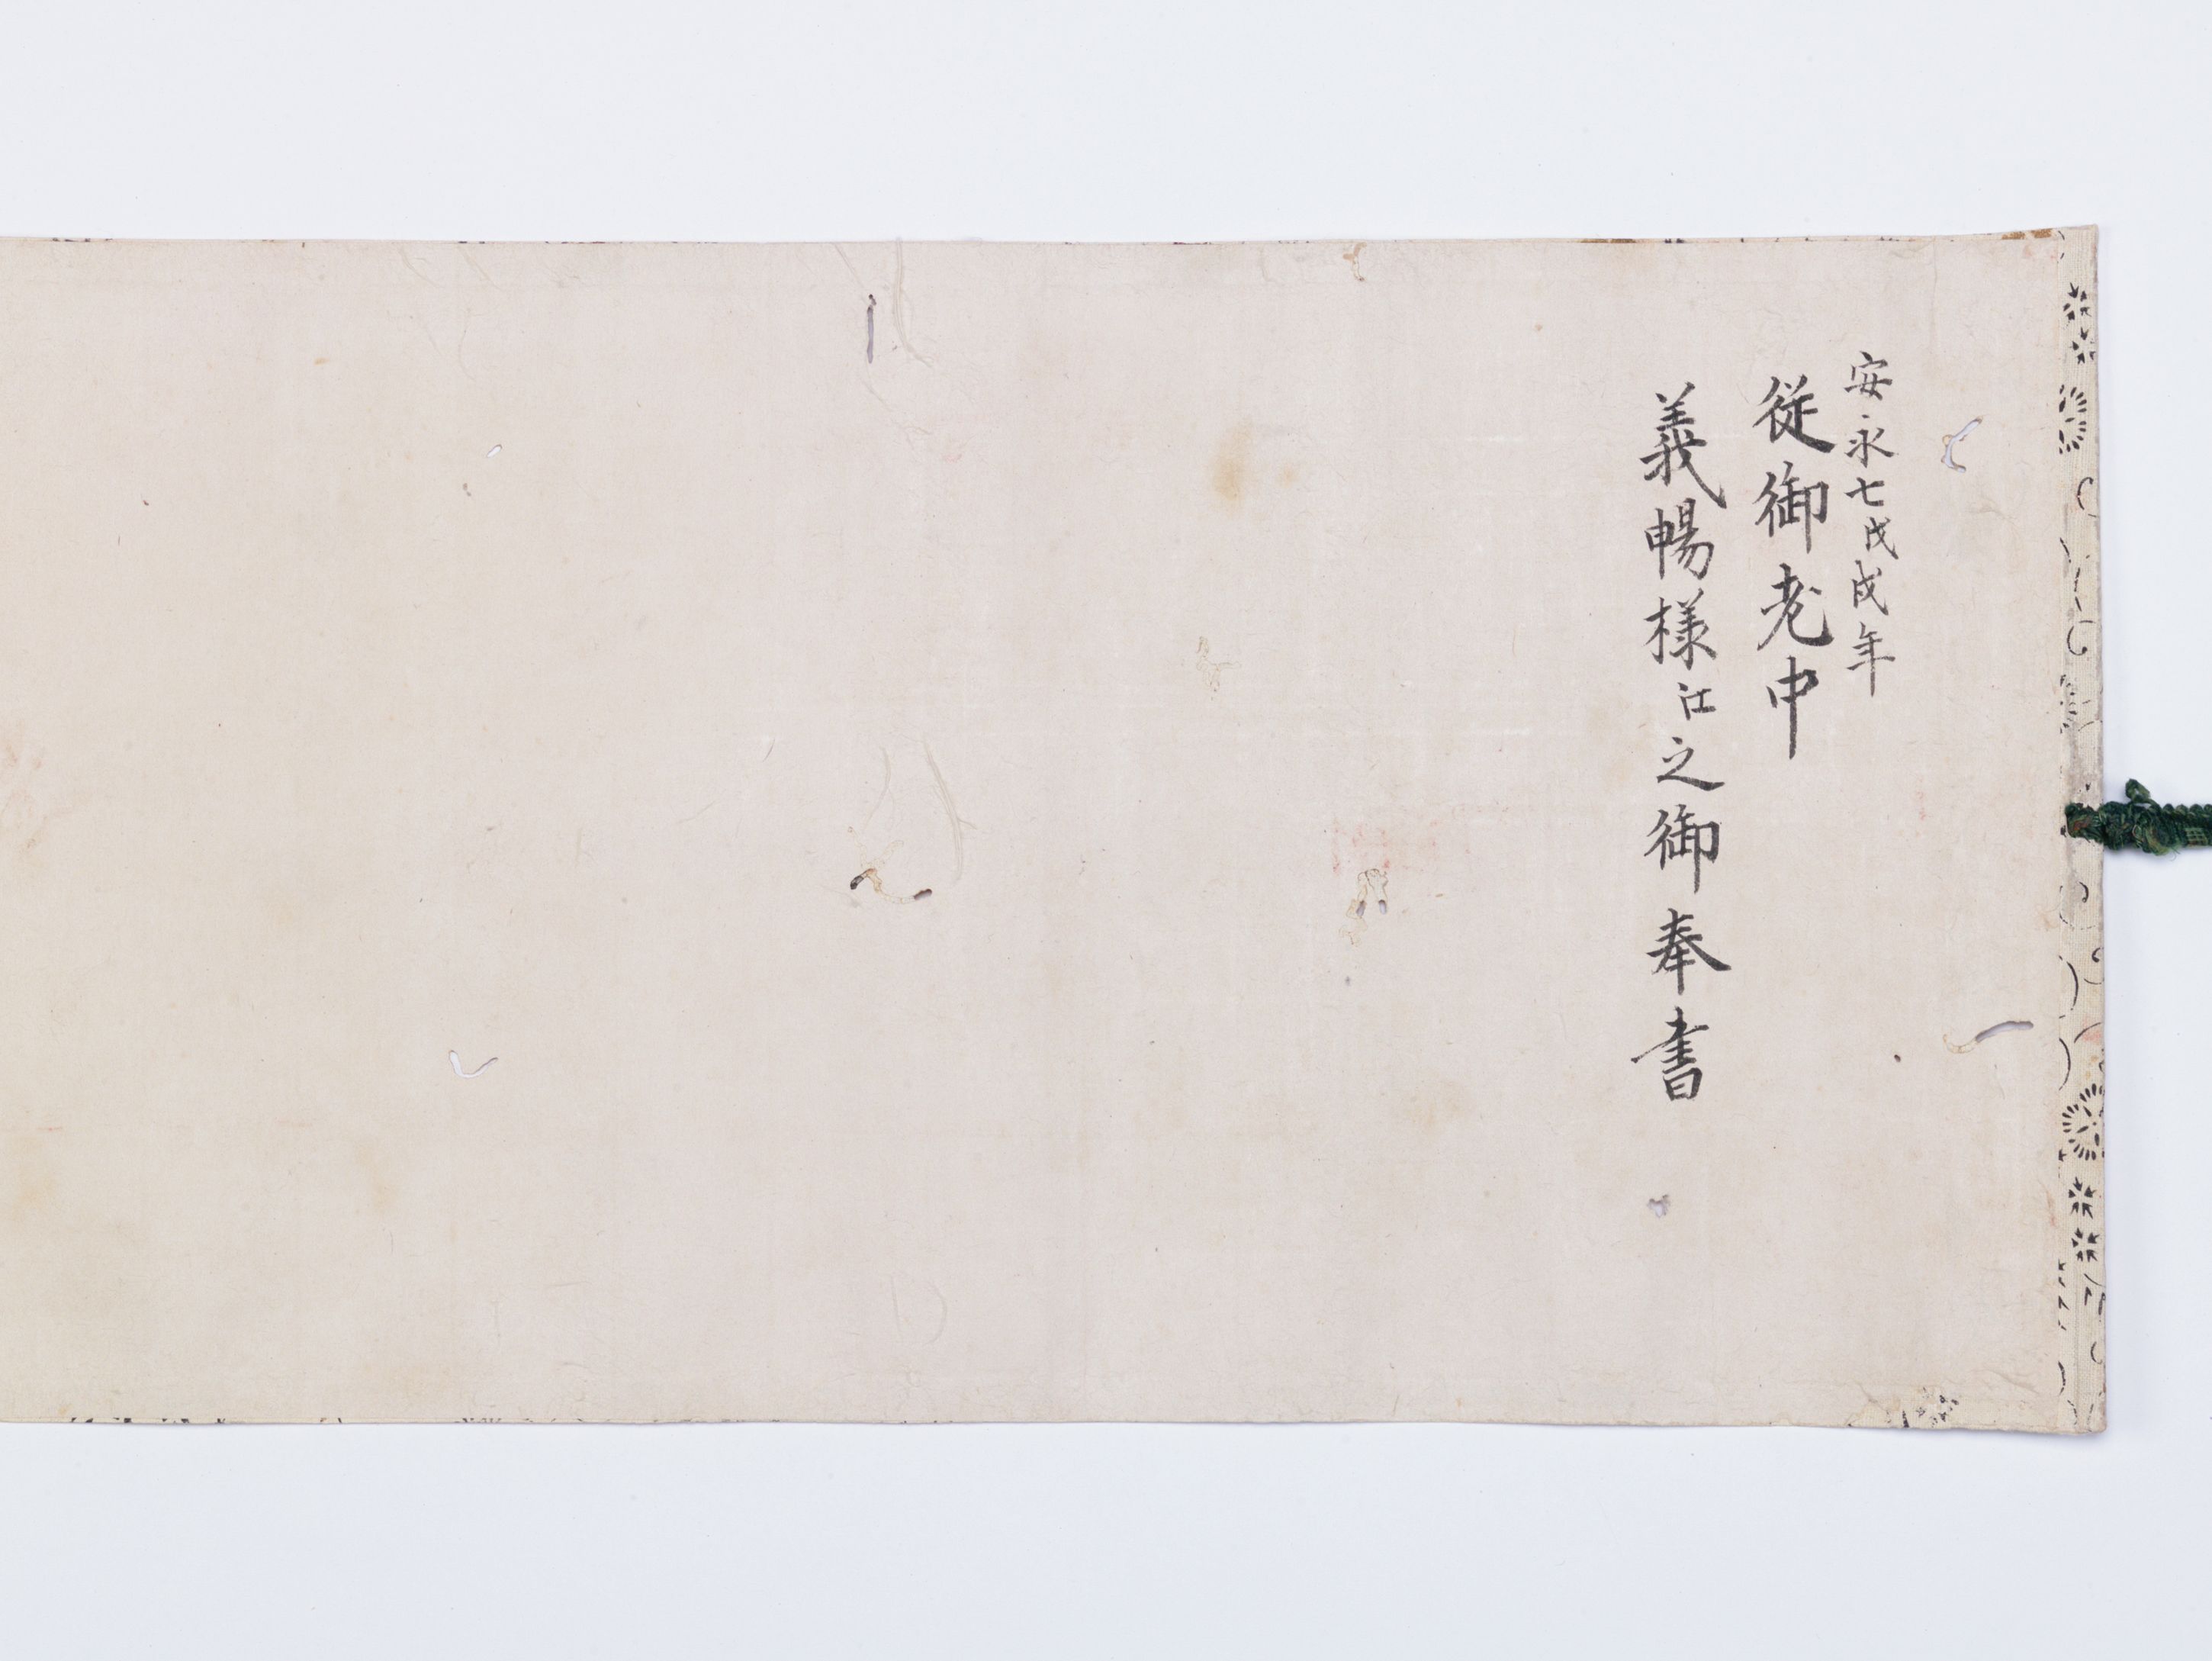 安永七戊戌年
従御老中
義暢様江之御奉書